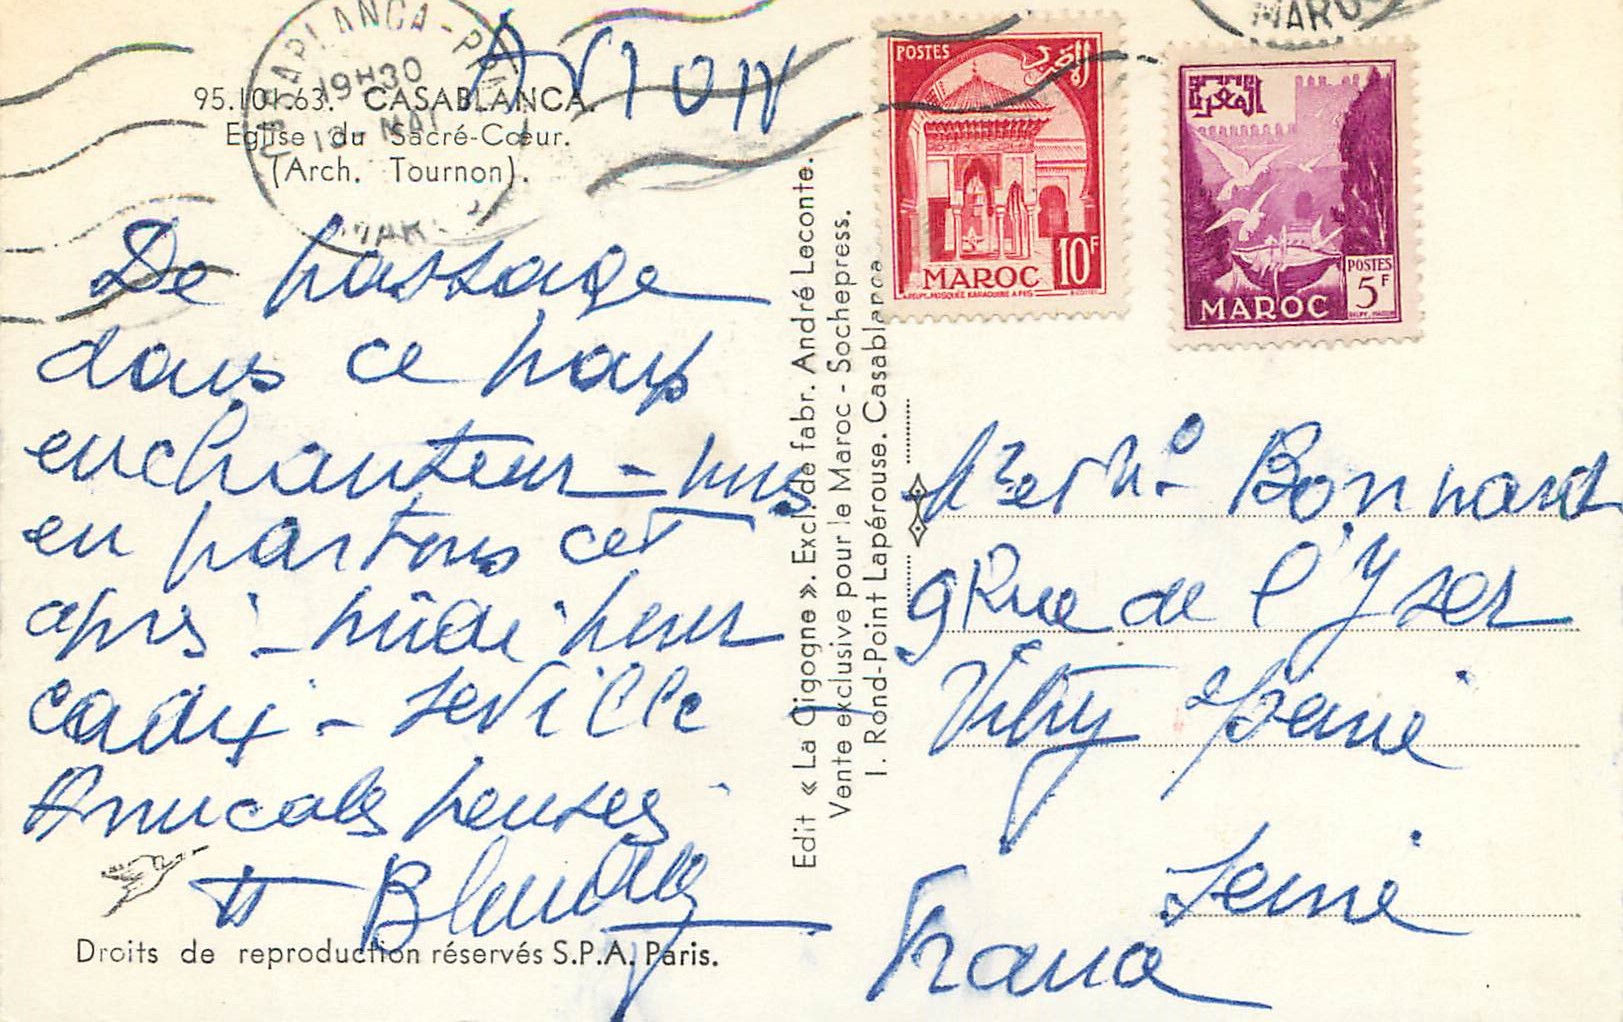 AVION
95.101.63. CASABLANCA.
Eglise du Sacré-Cœur.
(Arch. Tournon).
CASABLANCA-P
19H30
MAI
MAROC
De passage
dans ce pays
enchanteur - nous
en partons cet
après-midi pour
Cadix - Seville
Amicales pensées
Droits de reproduction réservés S.P.A. Paris.
Edit « La Cigogne ». Excl. de fabr. André Leconte.
Vente exclusive pour le Maroc - Sochepress.
1. Rond-Point Lapérouse. Casablanca
POSTES
المغرب
MAROC 10F
DELPY. MOSQUÉE KARAOUINE A FÈS
المغرب
POSTES
5F
MAROC
MARO
Mr et Me Bonnard
9 Rue de l'Yser
Vitry s/Seine
Seine
France